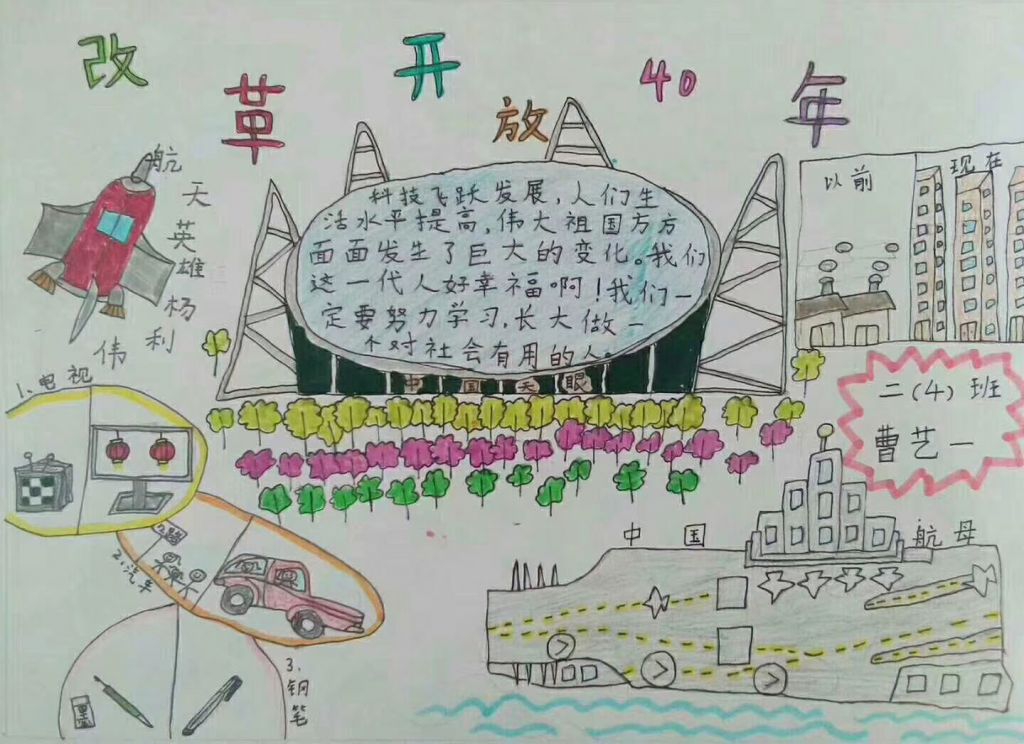 改革开放40年
航天英雄杨利伟
科技飞跃发展，人们生
活水平提高，伟大祖国方方
面面发生了巨大的变化。我们
这一代人好幸福啊！我们一
定要努力学习，长大做一
个对社会有用的人。
中国天眼
以前
现在
二(4)班
曹艺一
1.电视
2.汽车
3.钢笔
中国航母